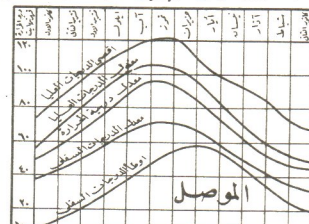 كانون الثاني
شباط
آذار
نيسان
أيار
حزيران
تموز
آب
ايلول
تشرين الاول
تشرين الثاني
كانون الاول
١٢٠
١٠٠
٨٠
٦٠
٤٠
٢٠
اقصى الدرجات العليا
معدل الدرجات العليا
معدل درجة الحرارة
معدل الدرجات السفلى
اوطأ الدرجات السفلى
الموصل